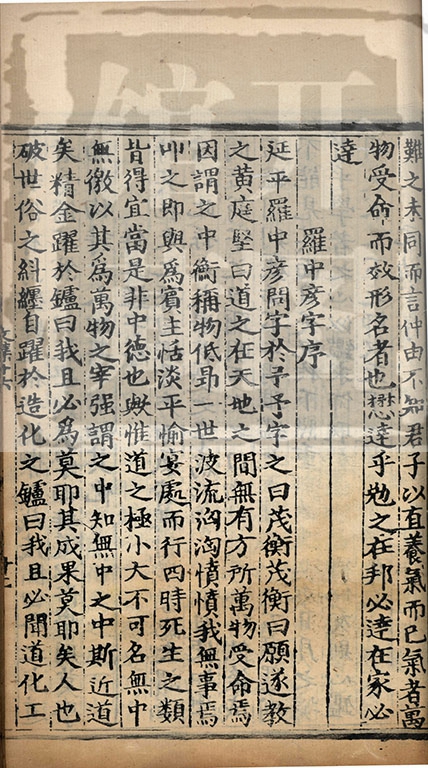 難之未同而言仲由不知君子以直養氣而已氣者萬
物受命而效形名者也懋達乎勉之在邦必達在家必
達
羅中彦字序
延平羅中彦問字於予予字之曰茂衡茂衡曰願遂教
之黃庭堅曰道之在天地之間無有方所萬物受命焉
因謂之中衡稱物低昂一世波流洶洶憒憒我無事焉
叩之即與爲賓主恬淡平愉宴處而行四時死生之類
皆得宜當是非中德也歟惟道之極小大不可名無中
無徼以其爲萬物之宰强謂之中知無中之中斯近道
矣精金躍於鑪曰我且必爲莫耶其成果莫耶矣人也
破世俗之糾纏自躍於造化之鑪曰我且必聞道化工